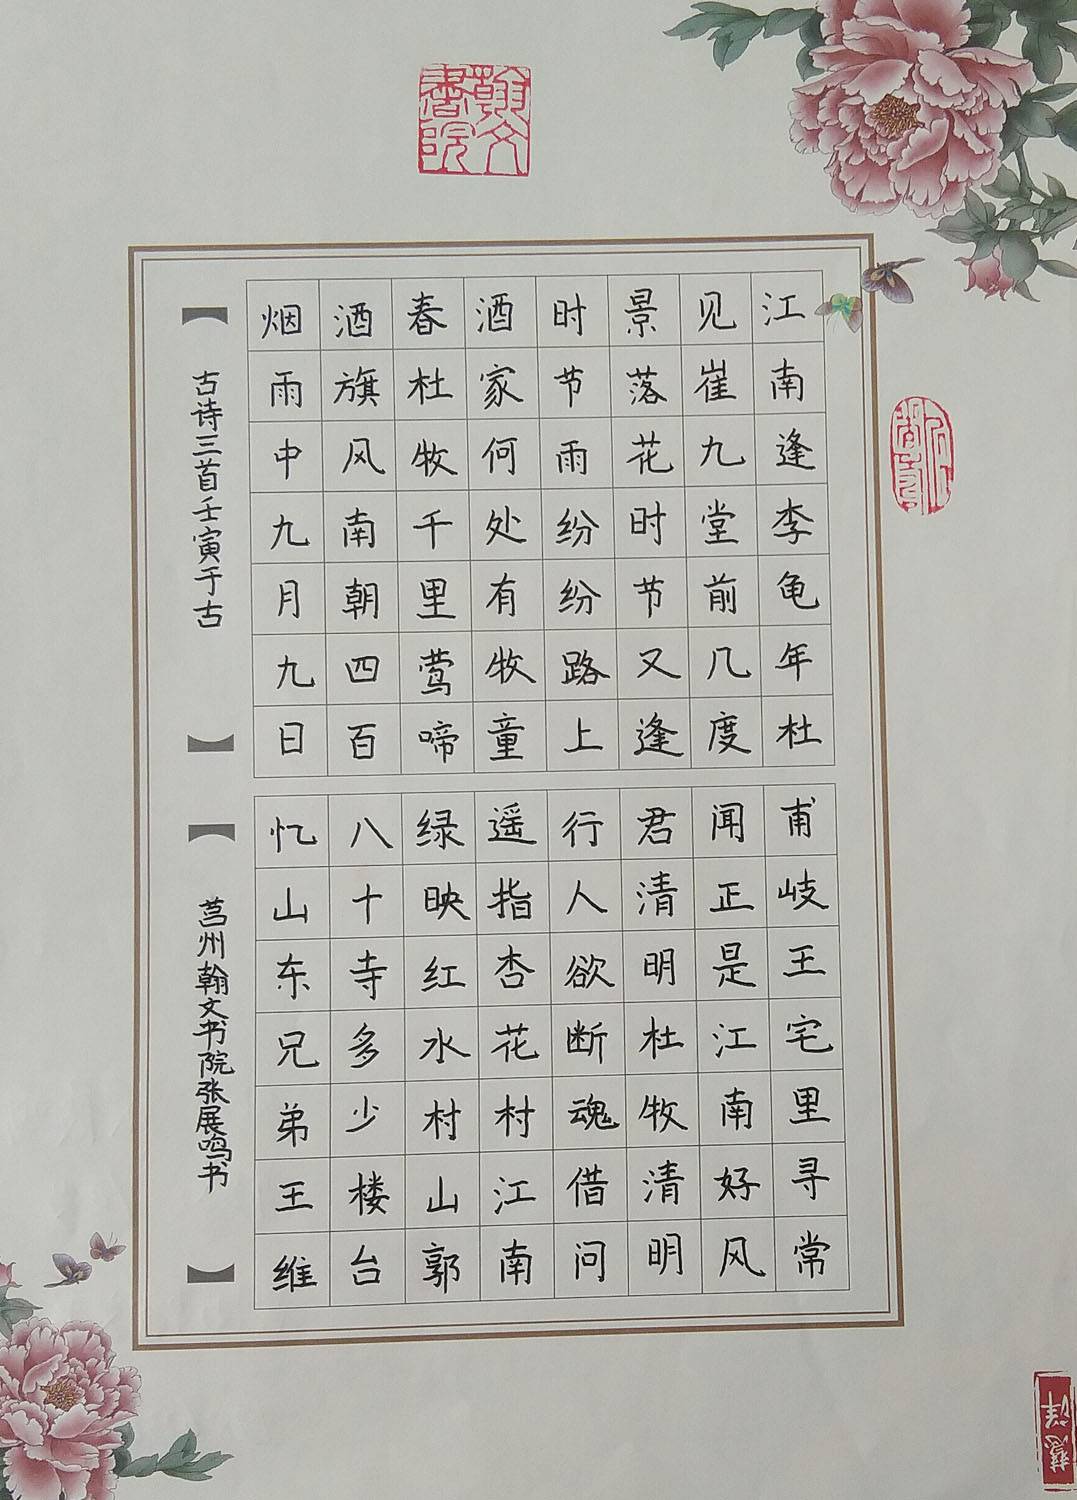 翰文書院
江南逢李龟年杜甫岐王宅里寻常
见崔九堂前几度闻正是江南好风
景落花时节又逢君清明杜牧清明
时节雨纷纷路上行人欲断魂借问
酒家何处有牧童遥指杏花村江南
春杜牧千里莺啼绿映红水村山郭
酒旗风南朝四百八十寺多少楼台
烟雨中九月九日忆山东兄弟王维
【古诗三首壬寅于古】
【莒州翰文书院张展鸣书】
慧祥